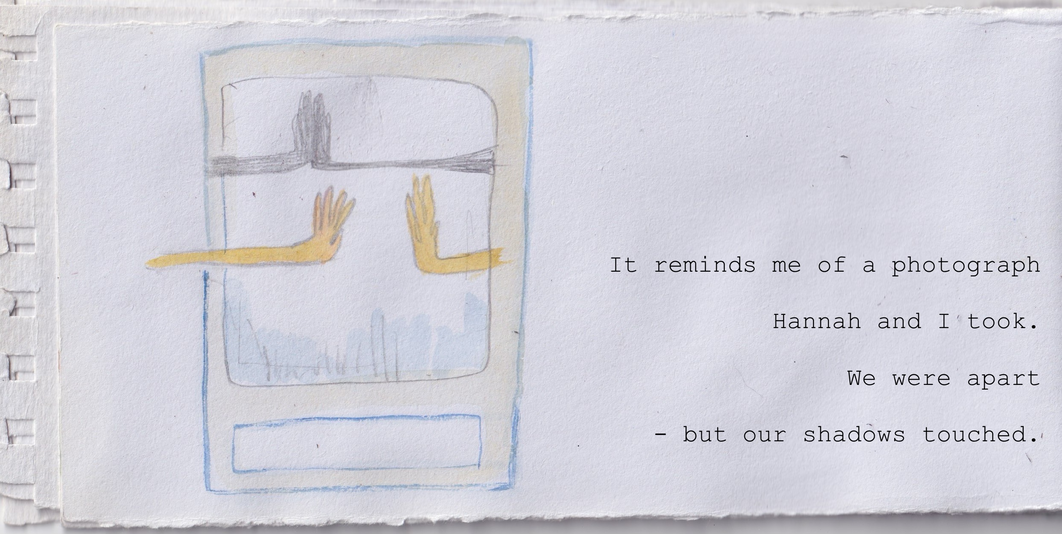 It reminds me of a photograph
Hannah and I took.
We were apart
- but our shadows touched.